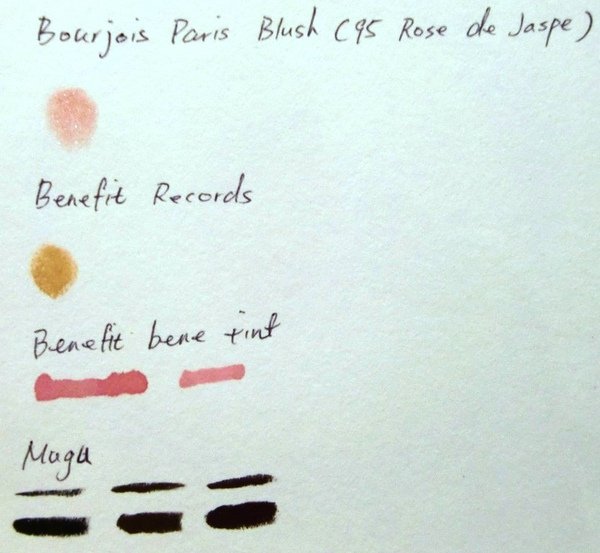 Bourjois Paris Blush (95 Rose de Jaspe)
Benefit Records
Benefit bene tint
Muga